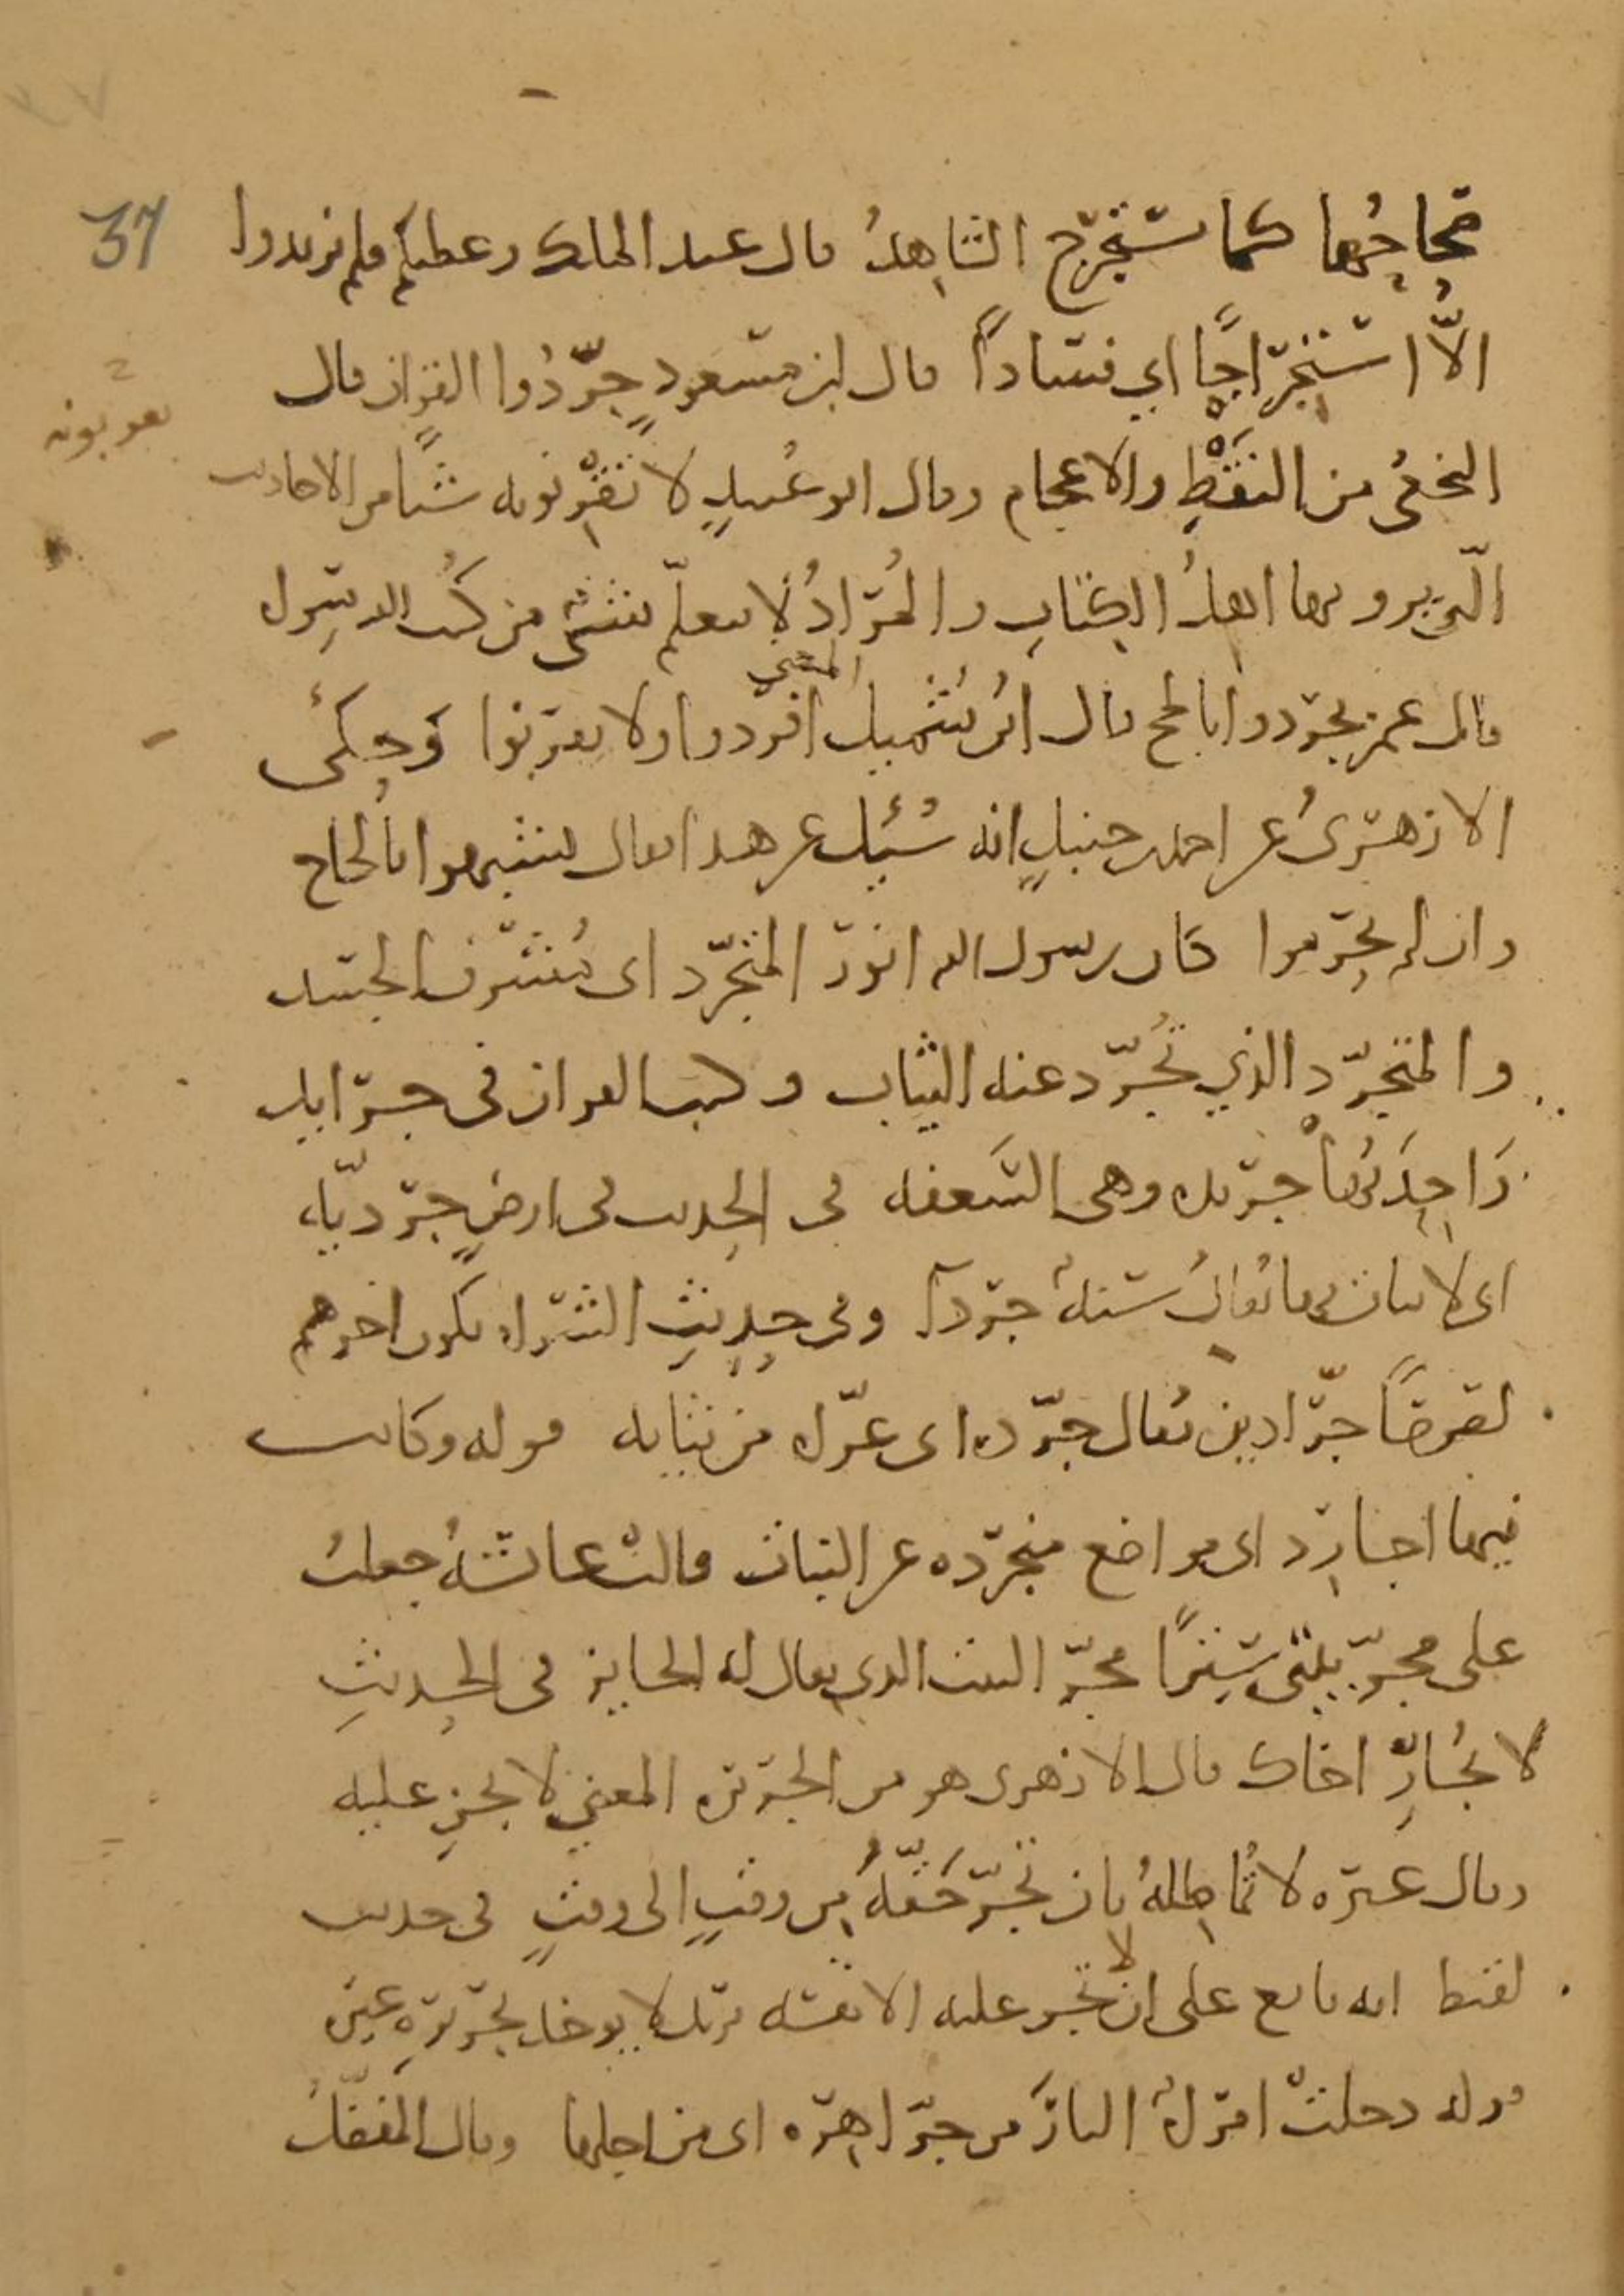 37
صحاحُها كما يستجرح الشاهدُ قال عبد الملك وعظتكم فلم تزدادوا
الّا استجراحًا اي فسادًا قال ابن مسعودٍ جرّدُوا القرآن قال
النخعىُ من النَقْطِ والاعجام وقال ابو عُبيدٍ لا تقرنوا به شيًا من الاحاديث
يقربونه
الّتي يرويها اهلُ الكتابِ والمُرادُ لا يتعلّم بشىء من كتب الله سواه
قال عمر تجردوا بالحج قال ابن شُميل المعنى افردوا ولا تقرنوا وَحكىَ
الازهرىُ عن احمد بن حنبلٍ انه سُئِل عن هذا فقال تشبهوا بالحاج
وان لم تحرموا كان رسول الله انور المتجرّد اى مُشرق الجسد
والمتجرّد الذي تُجرّد عنه الثياب وكتب القرآن فى جرايد
وَاحِدَتُها جريده وهى السَعفه فى الحديث فى ارضٍ جرديّه
اى لا نبات بها يُقالُ سنةٌ جردآ وفى حديثِ الشراه يكون اخرهم
لصوصًا جرّادين يُقال جرّده اى عرّاه من ثيابه قوله وكانت
فيها اجارد اى مواضع منجرده عن النبات قالت عائشةُ جعلتُ
على مجرّ بيتى سِترًا مجرّ البيت الذى يقال له الجايز فى الحديثِ
لا تُجارِّ اخاك قال الازهرى هو من الجريره المعني لا تجنِ عليه
وقال غيره لا تُماطلهُ بان تجرّ حَقّهُ من وقتٍ الى وقتٍ فى حديث
لقيط انه بايع على ان لا تجر عليه الا نفسه يريد لا يوخذ بجريرهِ غيره
قوله دخلتْ امراةٌ النارَ من جرّا هرّه اى من اجلها وقال المفضّلُ